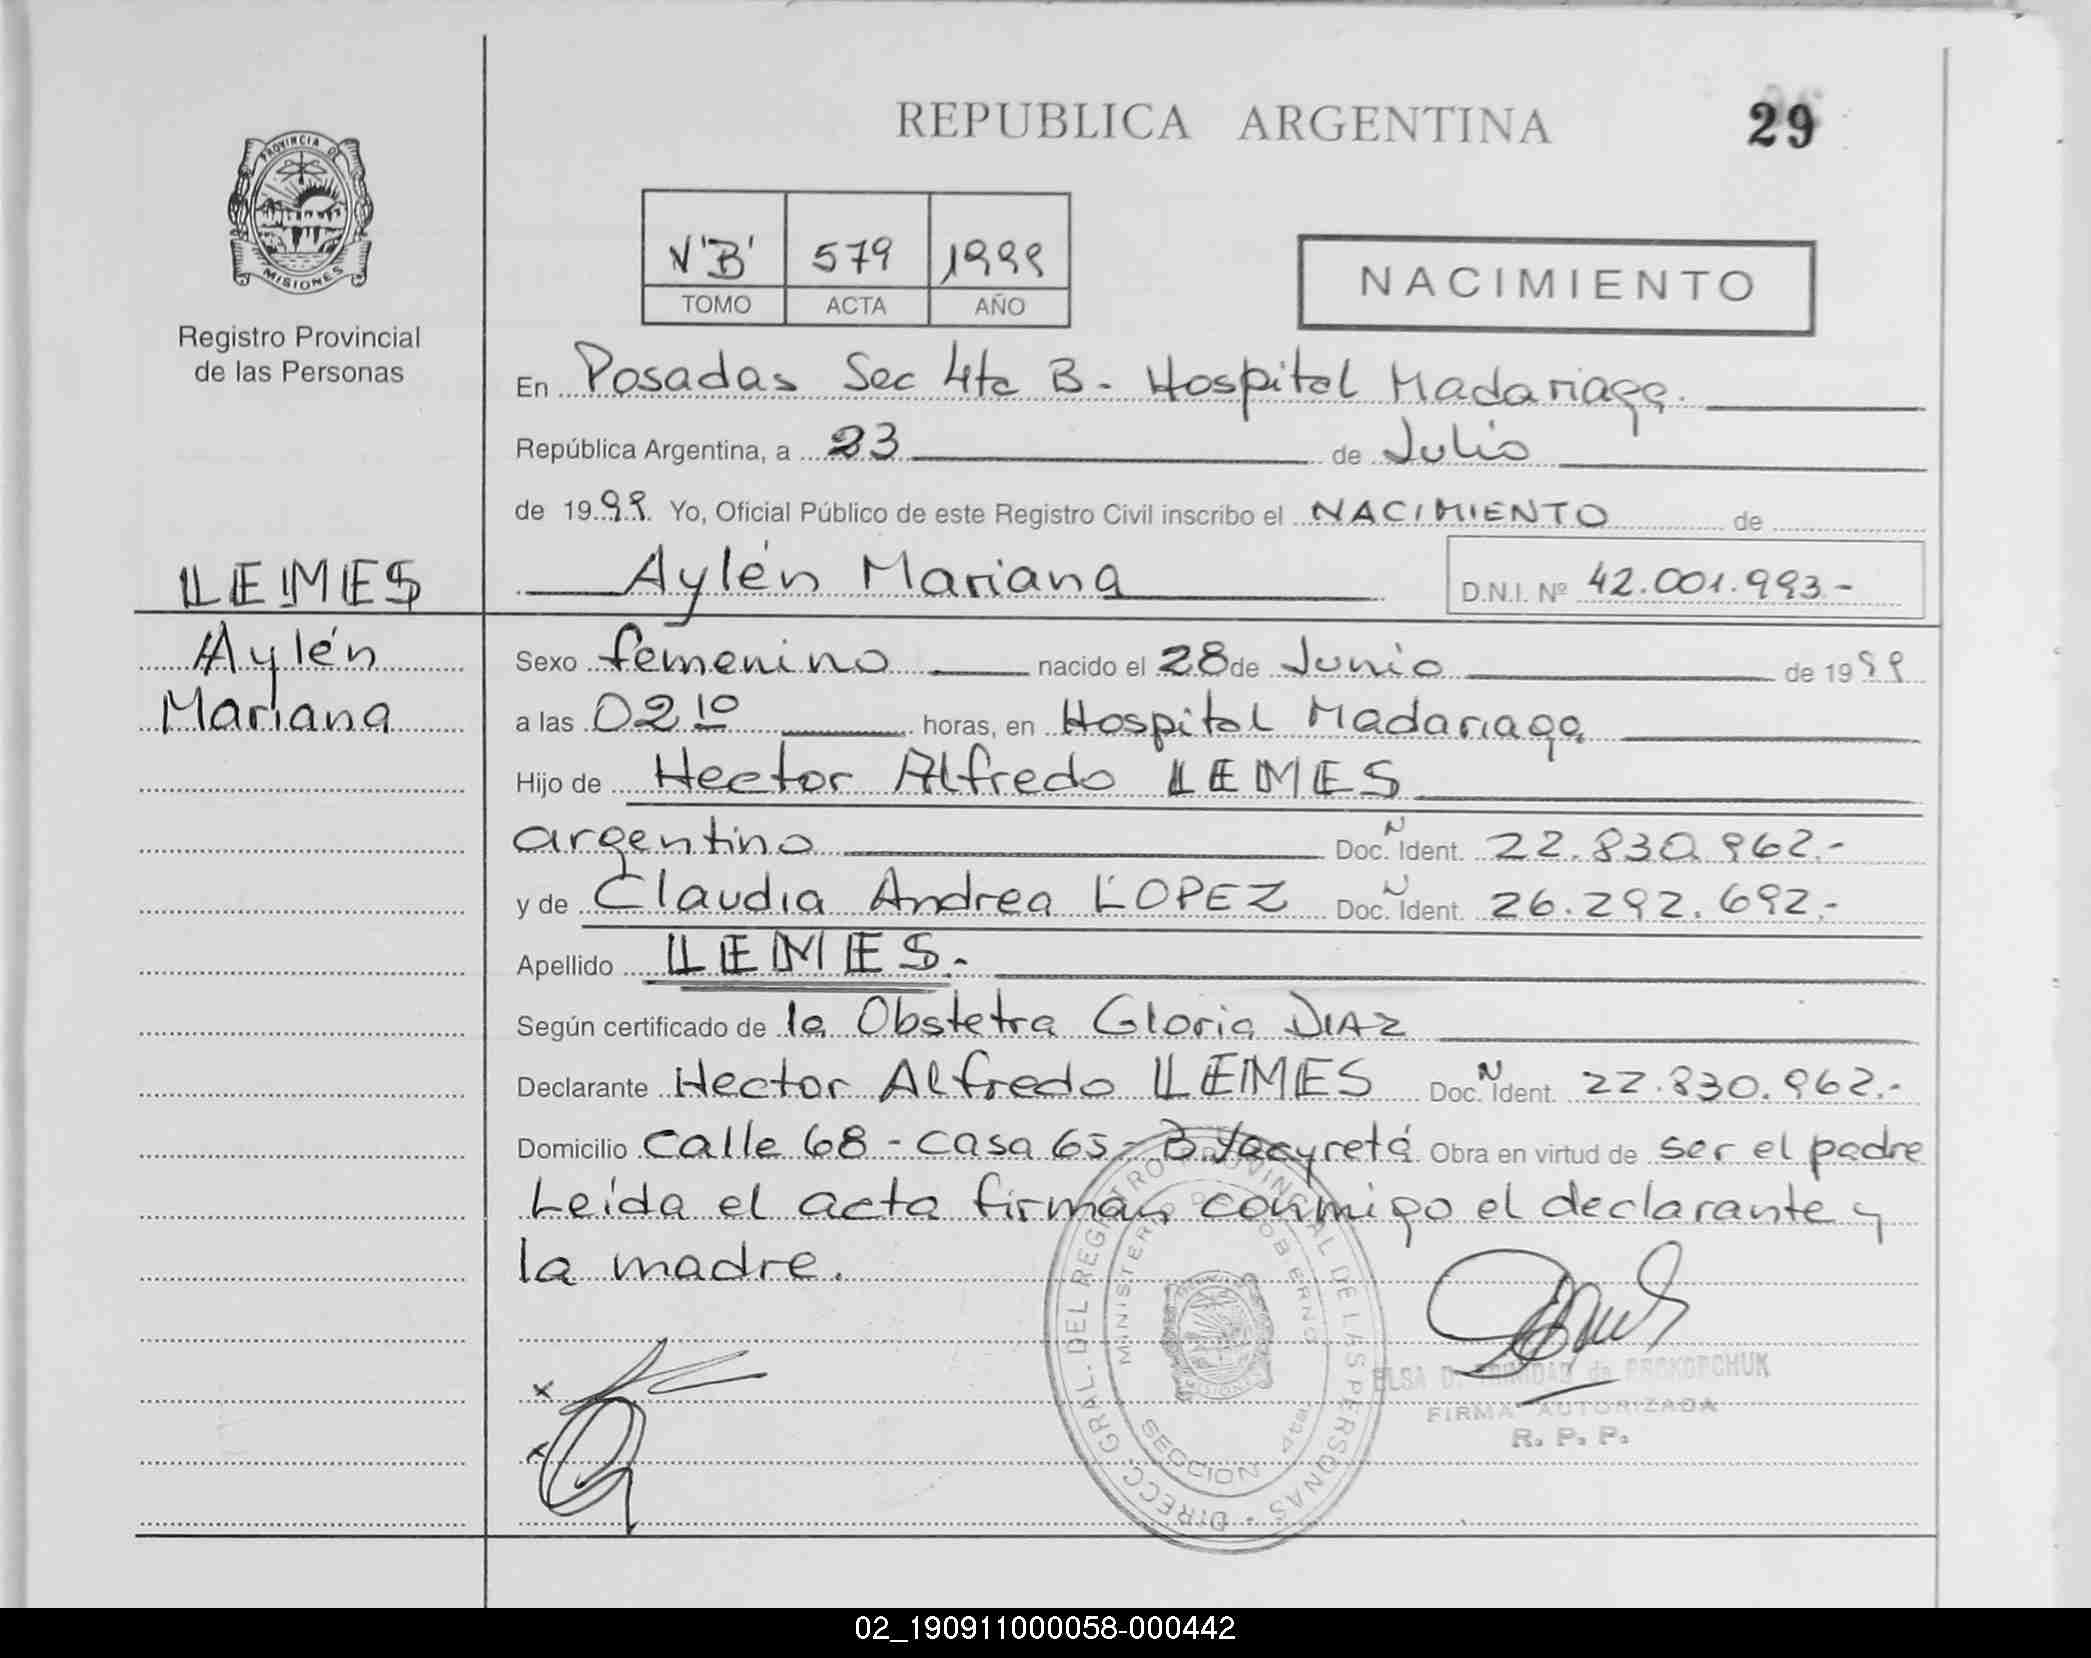 REPUBLICA ARGENTINA
29
PROVINCIA DE
MISIONES
Registro Provincial
de las Personas
V "B" 579 1999
TOMO ACTA AÑO
NACIMIENTO
En Posadas Sec 4ta B - Hospital Madariaga.
República Argentina, a 23 de Julio
de 1999. Yo, Oficial Público de este Registro Civil inscribo el NACIMIENTO de
Aylén Mariana D.N.I. Nº 42.001.993.-
LEMES
Aylén
Mariana
Sexo femenino nacido el 28 de Junio de 1999
a las 02 10 horas, en Hospital Madariaga
Hijo de Hector Alfredo LEMES
argentino Doc. N Ident. 22.830.962.-
y de Claudia Andrea LOPEZ Doc. N Ident. 26.292.692.-
Apellido LEMES.
Según certificado de la Obstetra Gloria DIAZ
Declarante Hector Alfredo LEMES Doc. N Ident. 22.830.962.-
Domicilio Calle 68 - casa 65 - B Yacyretá Obra en virtud de ser el padre
Leída el acta firman conmigo el declarante y
la madre.
DIRECC. GRAL. DEL REGISTRO PROVINCIAL DE LAS PERSONAS
MINISTERIO DE GOBIERNO
SECCION
ELSA D. TRINIDAD de PROKOPCHUK
FIRMA AUTORIZADA
R. P. P.
02_190911000058-000442